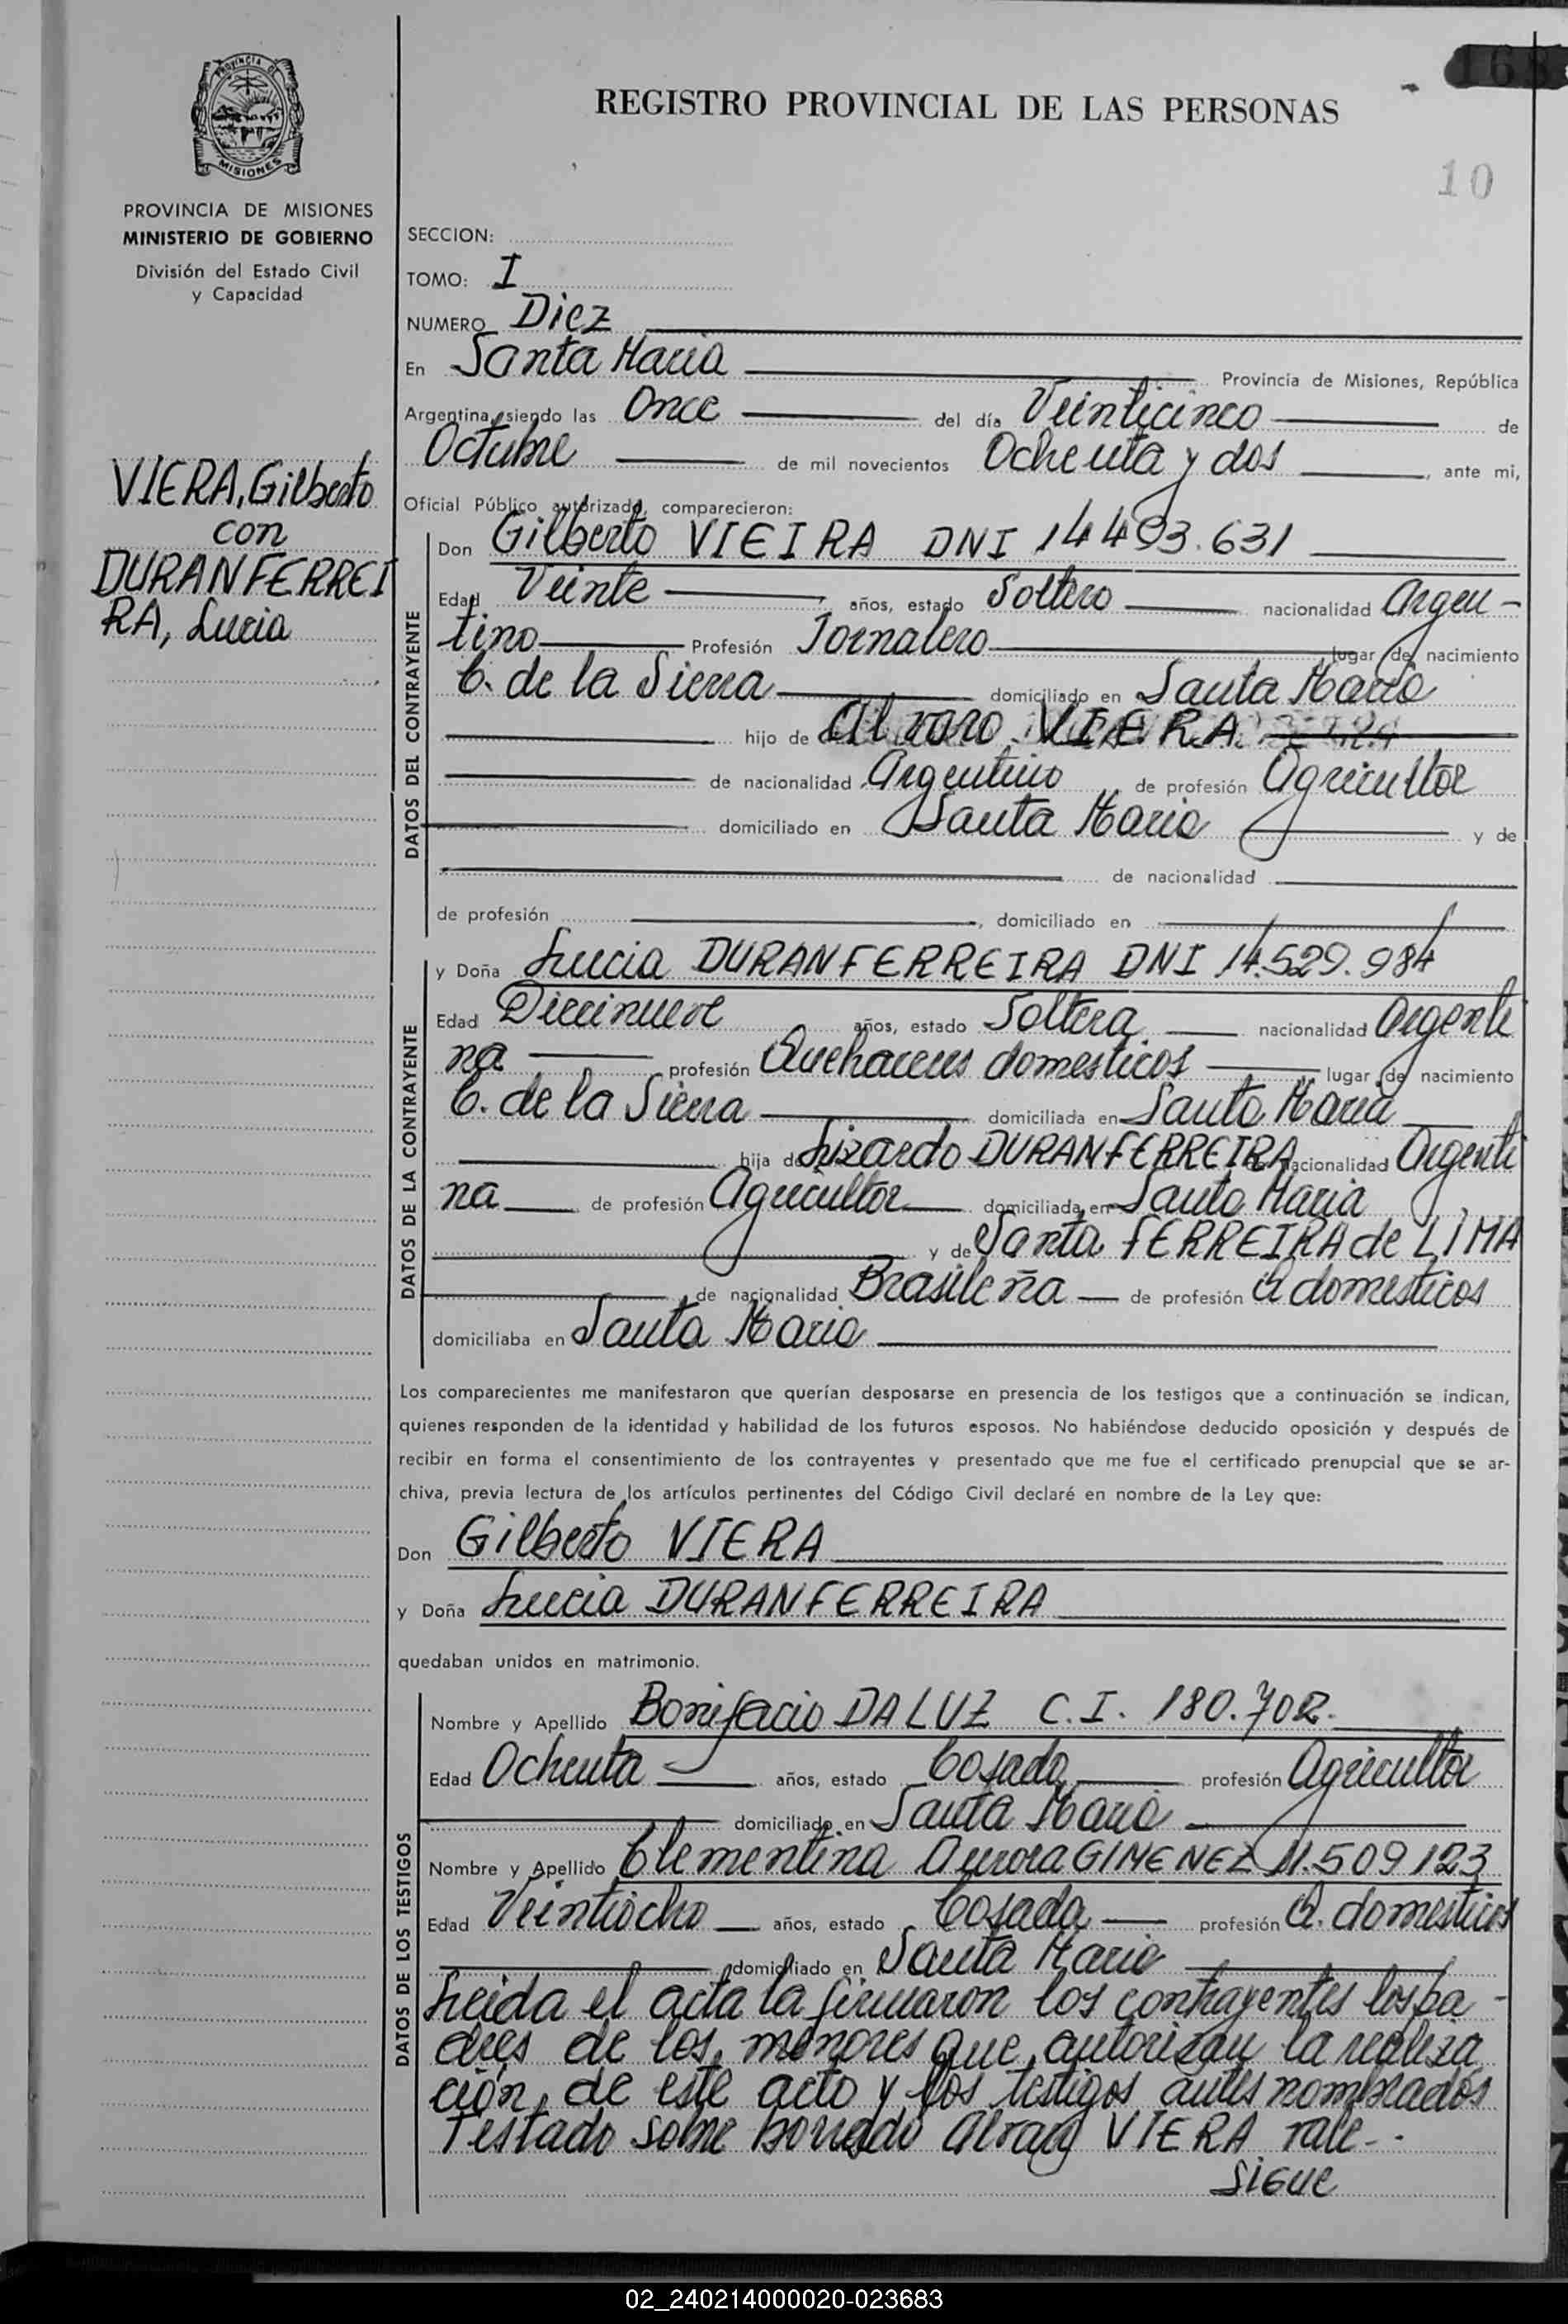 168
REGISTRO PROVINCIAL DE LAS PERSONAS
10
PROVINCIA DE MISIONES
PROVINCIA DE MISIONES
MINISTERIO DE GOBIERNO
División del Estado Civil
y Capacidad
VIERA, Gilberto
con
DURANFERREI
RA, Lucia
SECCION:
TOMO: I
NUMERO Diez
En Santa Maria Provincia de Misiones, República
Argentina, siendo las Once del día Veinticinco de
Octubre de mil novecientos Ochenta y dos, ante mi,
Oficial Público autorizado, comparecieron:
DATOS DEL CONTRAYENTE
Don Gilberto VIEIRA DNI 14493.631
Edad Veinte años, estado Soltero nacionalidad Argen-
tino Profesión Jornalero lugar de nacimiento
C. de la Sierra domiciliado en Santa Maria
hijo de Alvaro VIERA
de nacionalidad Argentino de profesión Agricultor
domiciliado en Santa Maria y de
de nacionalidad
de profesión, domiciliado en
DATOS DE LA CONTRAYENTE
y Doña Lucia DURANFERREIRA DNI 14.529.984
Edad Diecinueve años, estado Soltera nacionalidad Argenti
na profesión Quehaceres domesticos lugar de nacimiento
C. de la Sierra domiciliada en Santa Maria
hija de Lizardo DURANFERREIRA nacionalidad Argenti
na de profesión Agricultor domiciliada en Santa Maria
y de Santa FERREIRA de LIMA
de nacionalidad Brasileña de profesión Q domesticos
domiciliaba en Santa Maria
Los comparecientes me manifestaron que querían desposarse en presencia de los testigos que a continuación se indican,
quienes responden de la identidad y habilidad de los futuros esposos. No habiéndose deducido oposición y después de
recibir en forma el consentimiento de los contrayentes y presentado que me fue el certificado prenupcial que se ar-
chiva, previa lectura de los artículos pertinentes del Código Civil declaré en nombre de la Ley que:
Don Gilberto VIERA
y Doña Lucia DURANFERREIRA
quedaban unidos en matrimonio.
DATOS DE LOS TESTIGOS
Nombre y Apellido Bonifacio DA LUZ C.I. 180.702.
Edad Ochenta años, estado Casado profesión Agricultor
domiciliado en Santa Maria
Nombre y Apellido Clementina Aurora GIMENEZ 11.509123
Edad Veintiocho años, estado Casada profesión Q. domesticos
domiciliado en Santa Maria
Leida el acta la firmaron los contrayentes los pa-
dres de los menores que autorizan la realiza
ción de este acto y los testigos antes nombrados
Testado sobre borrado Alvaro VIERA vale-.
SIGUE
02_240214000020-023683